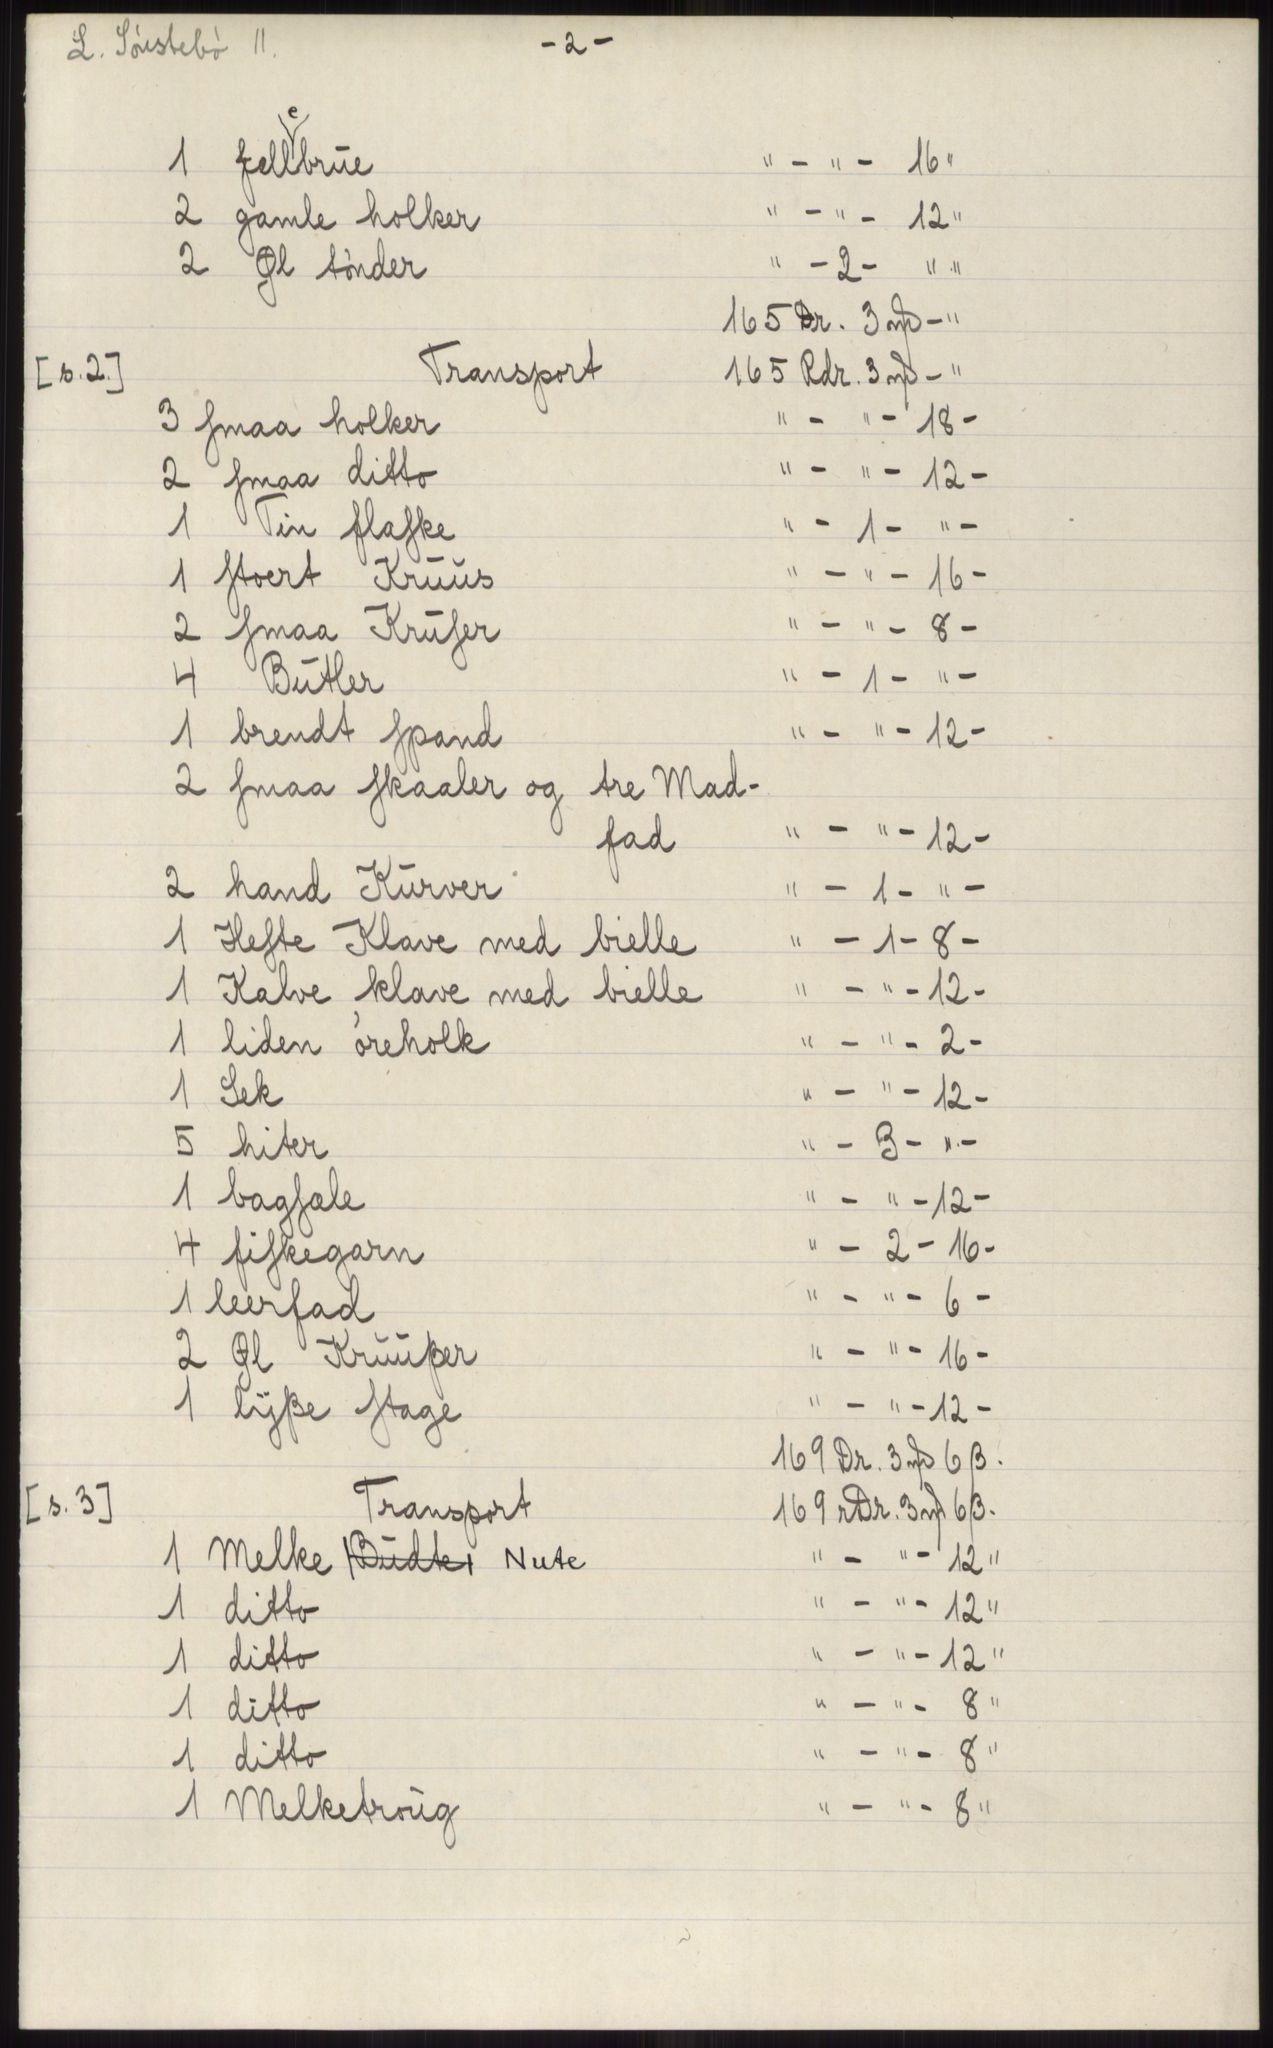 L. Sønstebø 11. -2-
1 fellebrūe " - " - 16"
2 gamle holker " - " - 12"
2 Øl tønder " - 2 - " "
165 Dr. 3 mʠ - "
[s.2.] Transport 165 Rdr. 3 mʠ - "
3 ſmaa holker " - " - 18 -
2 ſmaa ditto " - " - 12 -
1 Tin flaſke " - 1 - " -
1 ſtoert Krūūs " - " - 16 -
2 ſmaa Krūſer " - " - 8 -
4 Būtler " - 1 - " -
1 brendt ſpand " - " - 12 -
2 ſmaa ſkaaler og tre Mad-
fad " - " - 12 -
2 hand Kūrver " - 1 - " -
1 Heſte Klave med bielle " - 1 - 8 -
1 Kalve klave med bielle " - " - 12 -
1 liden øreholk " - " - 2 -
1 Sek " - " - 12 -
5 hiter " - 3 - " -
1 bagſæle " - " - 12 -
4 fiſkegarn " - 2 - 16 -
1 leerfad " - " - 6 -
2 Øl Krūūßer " - " - 16 -
1 lÿße ſtage " - " - 12 -
169 Dr. 3 mʠ 6 β.
[s. 3] Transport 169 rDr. 3 mʠ 6 β.
1 Melke Būdte Nute " - " - 12"
1 ditto " - " - 12"
1 ditto " - " - 12"
1 ditto " - " - 8"
1 ditto " - " - 8"
1 Melketroūg " - " - 8"